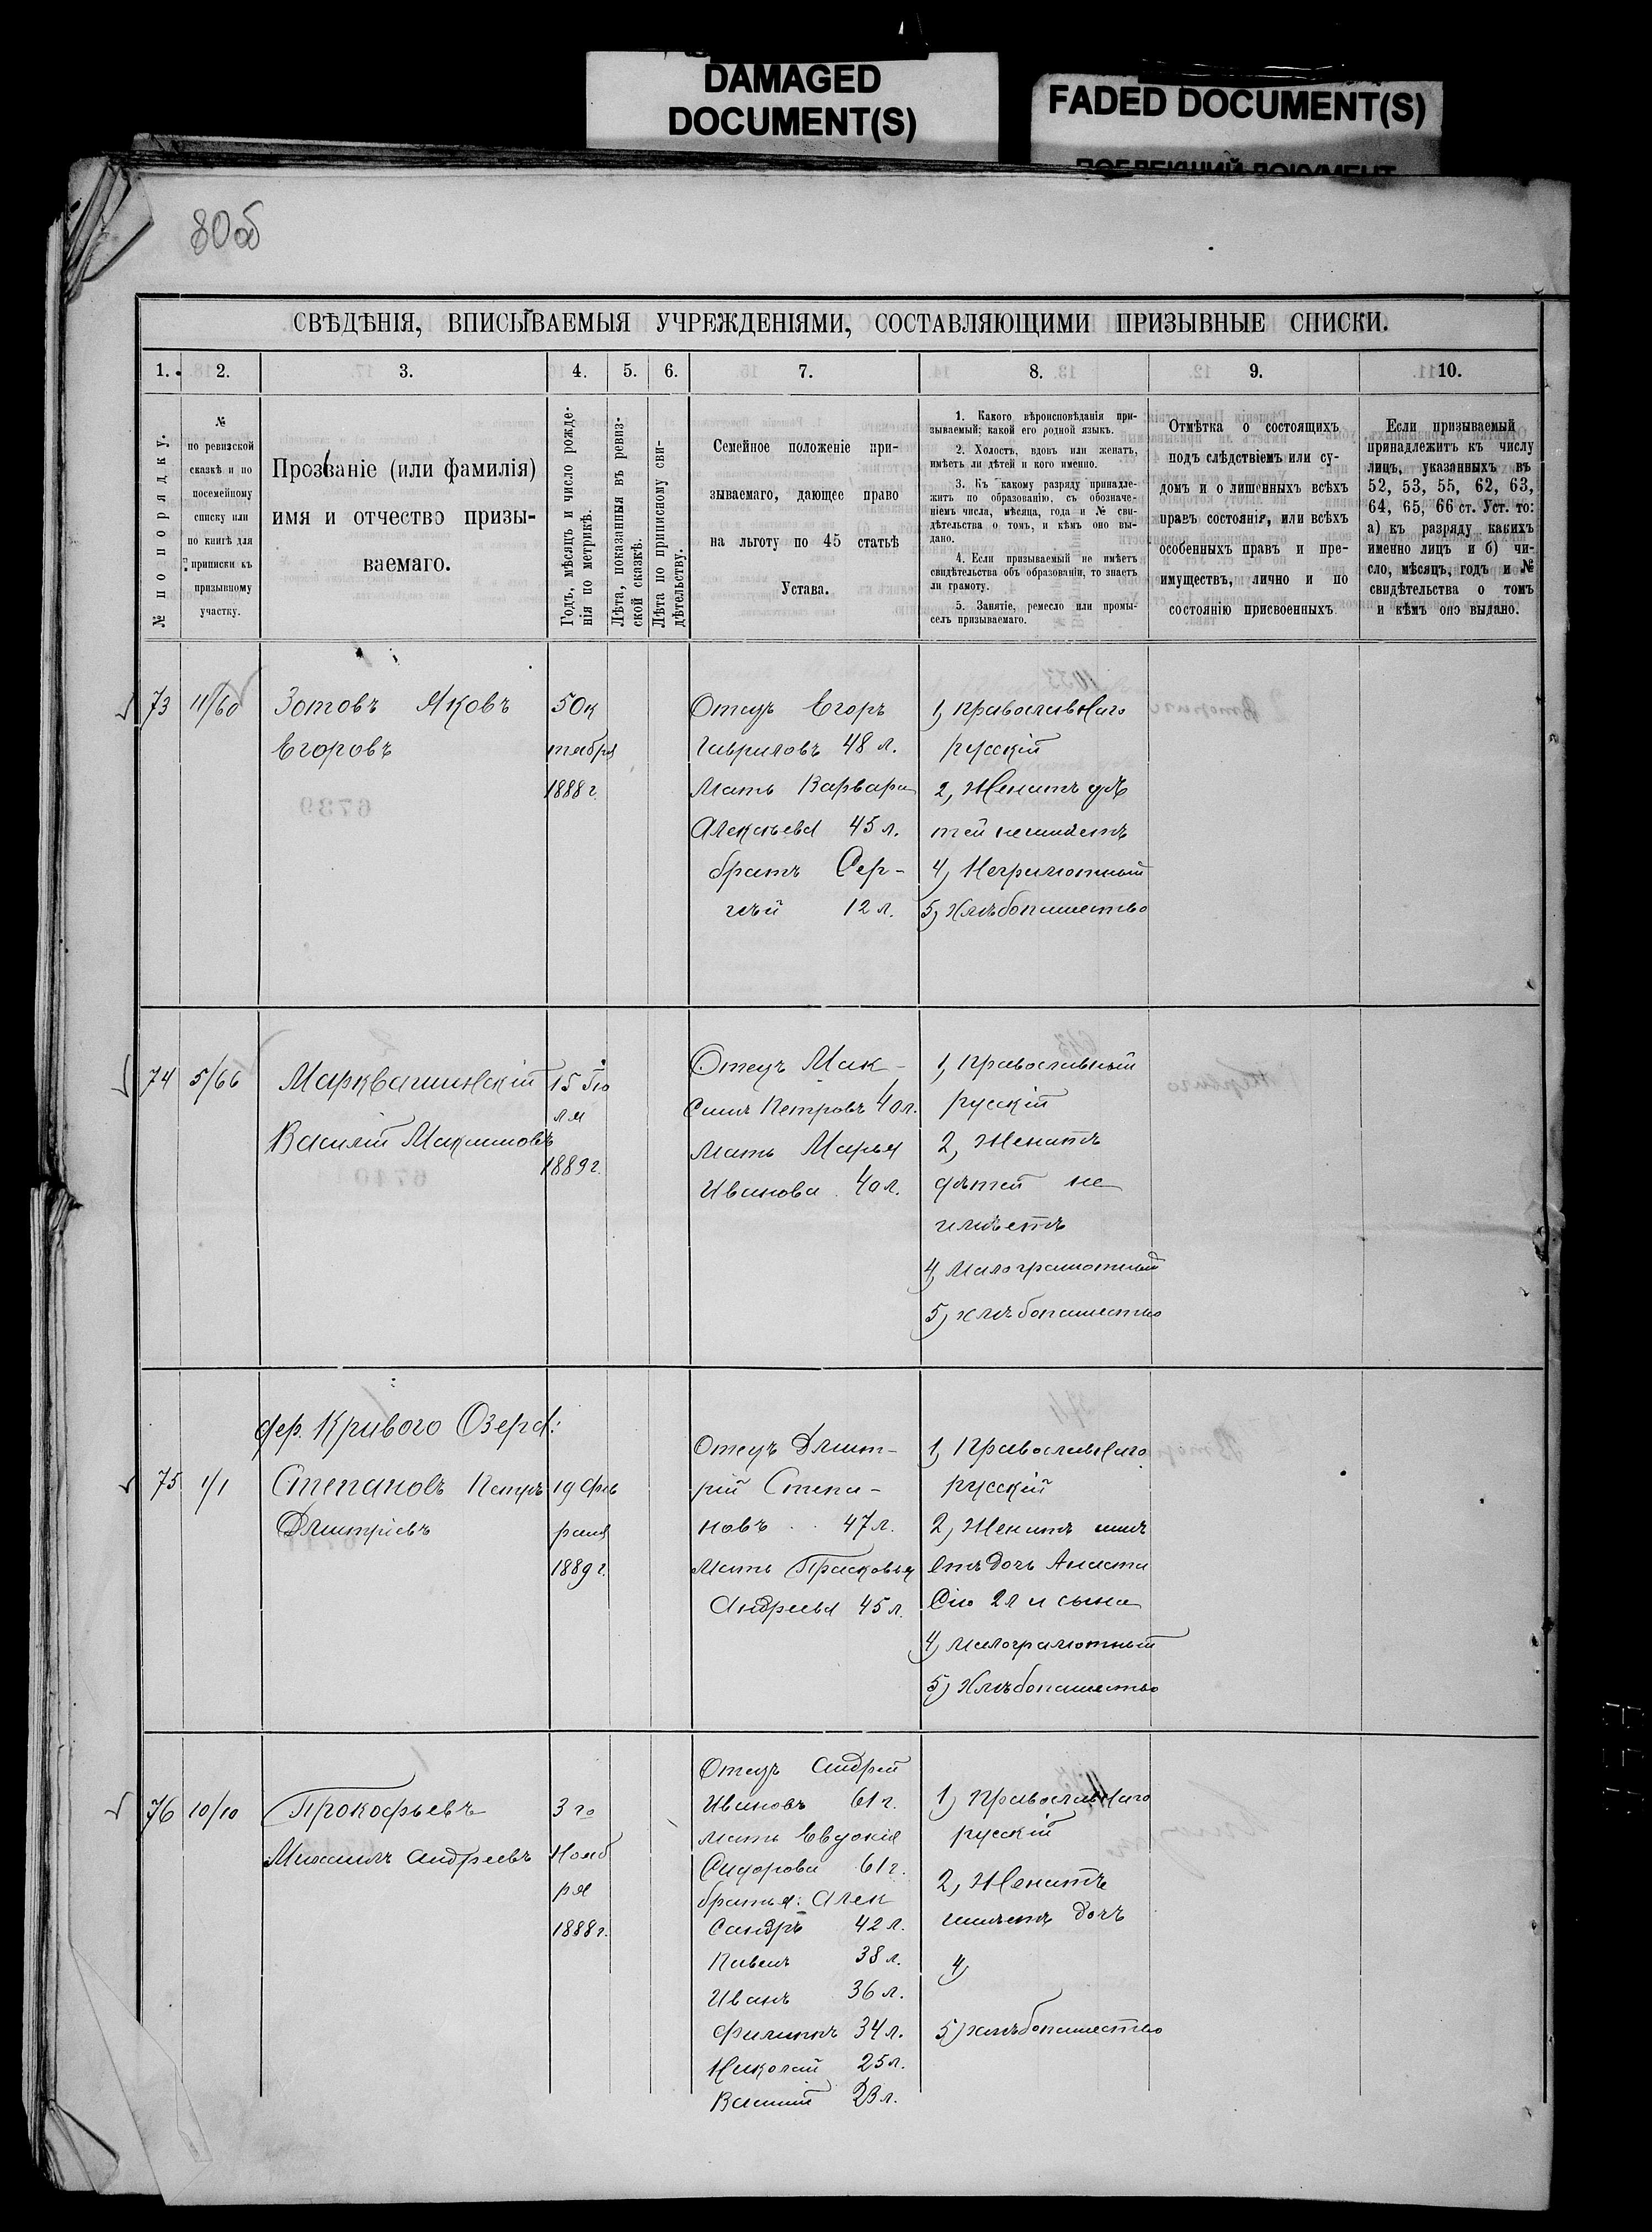 DAMAGED
DOCUMENT(S)
FADED DOCUMENT(S)
ПОБЛЕКШИЙ ДОКУМЕНТ
80об
СВѢДѢНІЯ, ВПИСЫВАЕМЫЯ УЧРЕЖДЕНІЯМИ, СОСТАВЛЯЮЩИМИ ПРИЗЫВНЫЕ СПИСКИ.
1. 2. 3. 4. 5. 6. 7. 8. 9. 10.
№ по порядку.
№
по ревизской
сказкѣ и по
посемейному
списку или
по книгѣ для
приписки къ
призывному
участку.
Прозваніе (или фамилія)
имя и отчество призы-
ваемаго.
Годъ, мѣсяцъ и число рожде-
нія по метрикѣ.
Лѣта, показанныя въ ревиз-
ской сказкѣ.
Лѣта по приписному сви-
дѣтельству.
Семейное положеніе при-
зываемаго, дающее право
на льготу по 45 статьѣ
Устава.
1. Какого вѣроисповѣданія при-
зываемый; какой его родной языкъ.
2. Холостъ, вдовъ или женатъ,
имѣетъ ли дѣтей и кого именно.
3. Къ какому разряду принадле-
житъ по образованію, съ обозначе-
ніемъ числа, мѣсяца, года и № сви-
дѣтельства о томъ, и кѣмъ оно вы-
дано.
4. Если призываемый не имѣетъ
свидѣтельства объ образованіи, то знаетъ
ли грамоту.
5. Занятіе, ремесло или промы-
селъ призываемаго.
Отмѣтка о состоящихъ
подъ слѣдствіемъ или су-
домъ и о лишенныхъ всѣхъ
правъ состоянія, или всѣхъ
особенныхъ правъ и пре-
имуществъ, лично и по
состоянію присвоенныхъ
Если призываемый
принадлежитъ къ числу
лицъ, указанныхъ въ
52, 53, 55, 62, 63,
64, 65, 66 ст. Уст. то:
а) къ разряду какихъ
именно лицъ и б) чи-
сло, мѣсяцъ, годъ и №
свидѣтельства о томъ
и кѣмъ оно выдано.
73 11/60
Зотовъ Яковъ
Егоровъ
5 Ок
тября
1888 г.
Отецъ Егоръ
Гавриловъ 48 л.
Мать Варвара
Алексѣева 45 л.
братъ Сер-
гѣй 12 л.
1, православнаго
русскій
2, Женатъ дѣ
тей неимѣетъ
4, Неграмотный
5, Хлѣбопашество
74 5/66
Марквашинскій
Василій Максимовъ
15 Ію
ля
1889 г.
Отецъ Мак-
симъ Петровъ 40 л.
Мать Марья
Иванова 40 л.
1, Православный
русскій
2, Женатъ
дѣтей не
имѣетъ
4, Малограмотный
5, хлѣбопашество
дер. Кривого Озера:
75 1/1
Степановъ Петръ
Дмитріевъ
19 Фев
раля
1889 г.
Отецъ Дмит-
рій Степа-
новъ 47 л.
Мать Прасковья
Андреева 45 л.
1, Православнаго
русскій
2, Женатъ имѣ
етъ дочь Анаста
сію 2 л и сына
4, малограмотный
5, Хлѣбопашество
76 10/10
Прокофьевъ
Михаилъ Андреевъ
3 го
Нояб
ря
1888 г.
Отецъ Андрей
Ивановъ 61 г.
мать Евдокія
Сидорова 61 г.
братья: Алек
сандръ 42 л.
Павелъ 38 л.
Иванъ 36 л.
Филиппъ 34 л.
Николай 25 л.
Василій 23 л.
1, Православнаго
русскій
2, Женатъ
имѣетъ дочь
4,
5, хлѣбопашество